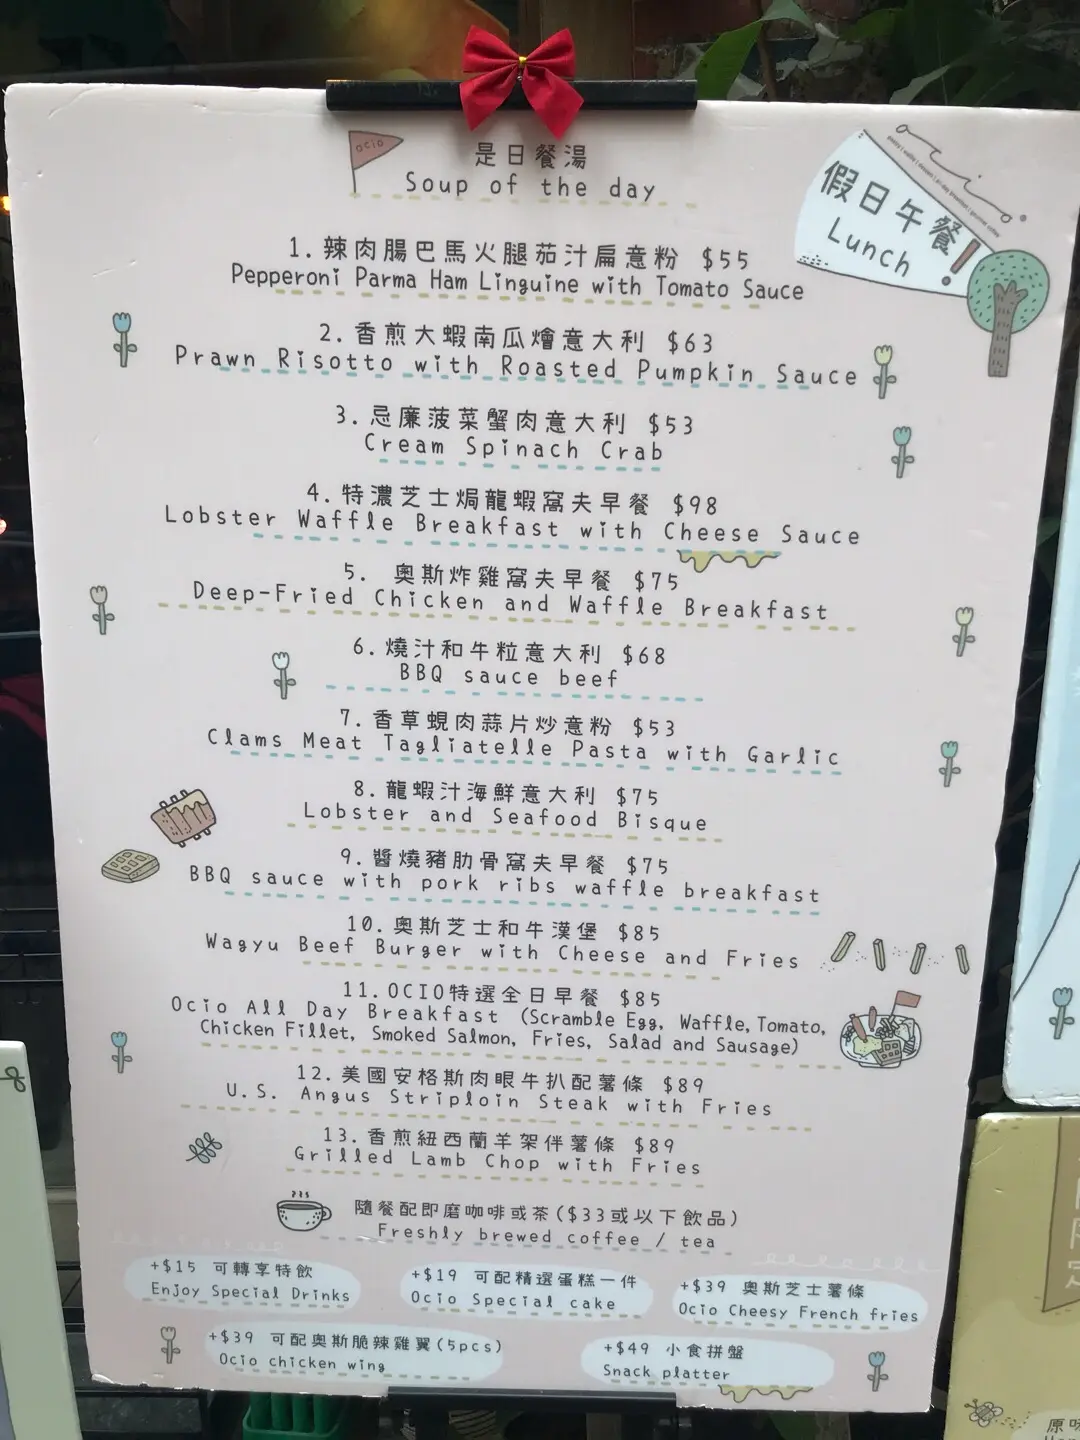 ocio
是日餐湯
Soup of the day
假日午餐!
Lunch
1. 辣肉腸巴馬火腿茄汁扁意粉 $55
Pepperoni Parma Ham Linguine with Tomato Sauce
2. 香煎大蝦南瓜燴意大利 $63
Prawn Risotto with Roasted Pumpkin Sauce
3. 忌廉菠菜蟹肉意大利 $53
Cream Spinach Crab
4. 特濃芝士焗龍蝦窩夫早餐 $98
Lobster Waffle Breakfast with Cheese Sauce
5. 奧斯炸雞窩夫早餐 $75
Deep-Fried Chicken and Waffle Breakfast
6. 燒汁和牛粒意大利 $68
BBQ sauce beef
7. 香草蜆肉蒜片炒意粉 $53
Clams Meat Tagliatelle Pasta with Garlic
8. 龍蝦汁海鮮意大利 $75
Lobster and Seafood Bisque
9. 醬燒豬肋骨窩夫早餐 $75
BBQ sauce with pork ribs waffle breakfast
10. 奧斯芝士和牛漢堡 $85
Wagyu Beef Burger with Cheese and Fries
11. OCIO特選全日早餐 $85
Ocio All Day Breakfast (Scramble Egg, Waffle, Tomato,
Chicken Fillet, Smoked Salmon, Fries, Salad and Sausage)
12. 美國安格斯肉眼牛扒配薯條 $89
U.S. Angus Striploin Steak with Fries
13. 香煎紐西蘭羊架伴薯條 $89
Grilled Lamb Chop with Fries
隨餐配即磨咖啡或茶($33或以下飲品)
Freshly brewed coffee / tea
+$15 可轉享特飲
Enjoy Special Drinks
+$19 可配精選蛋糕一件
Ocio Special cake
+$39 奧斯芝士薯條
Ocio Cheesy French fries
+$39 可配奧斯脆辣雞翼(5pcs)
Ocio chicken wing
+$49 小食拼盤
Snack platter